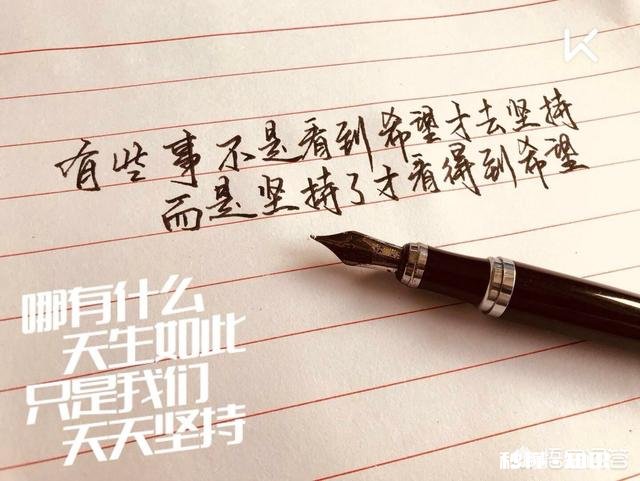 有些事不是看到希望才去坚持
而是坚持了才看得到希望
哪有什么
天生如此
只是我们
天天坚持